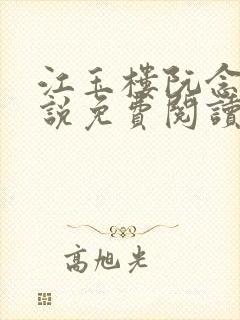 江玉樓阮念
說免費閱讀
高旭光